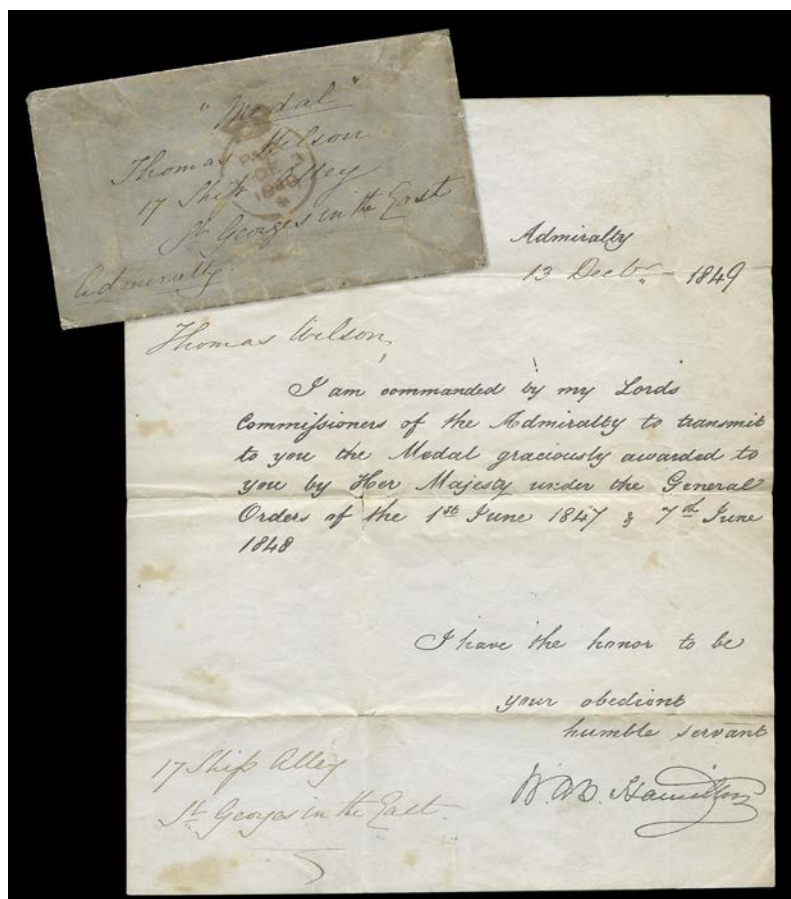 "Medal"
Thomas Wilson
17 Ship Alley
St Georges in the East
Admiralty.
DE
1849
Admiralty
13 Decbr 1849
Thomas Wilson,
I am commanded by my Lords
Commissioners of the Admiralty to transmit
to you the Medal graciously awarded to
you by Her Majesty under the General
Orders of the 1st June 1847 & 7th June
1848
I have the honor to be
your obedient
humble servant
W.A.B. Hamilton
17 Ship Alley
St Georges in the East.